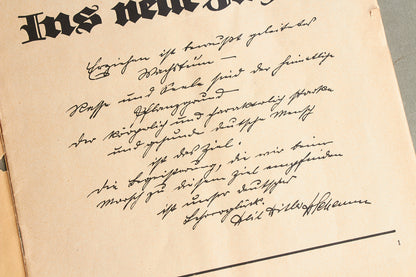 Ins neue
Erziehen ist bewußt geleitetes
Wachstum –
Rasse und Seele sind der heimatliche
Pflanzgrund
der körperlich und charakterlich starke
und gesunde deutsche Mensch
ist das Ziel.
die Begeisterung, die wir beim
Marsch zu diesem Ziel empfinden
ist unser deutsches
Lehrerglück.
Heil Hitler! Schemm
1